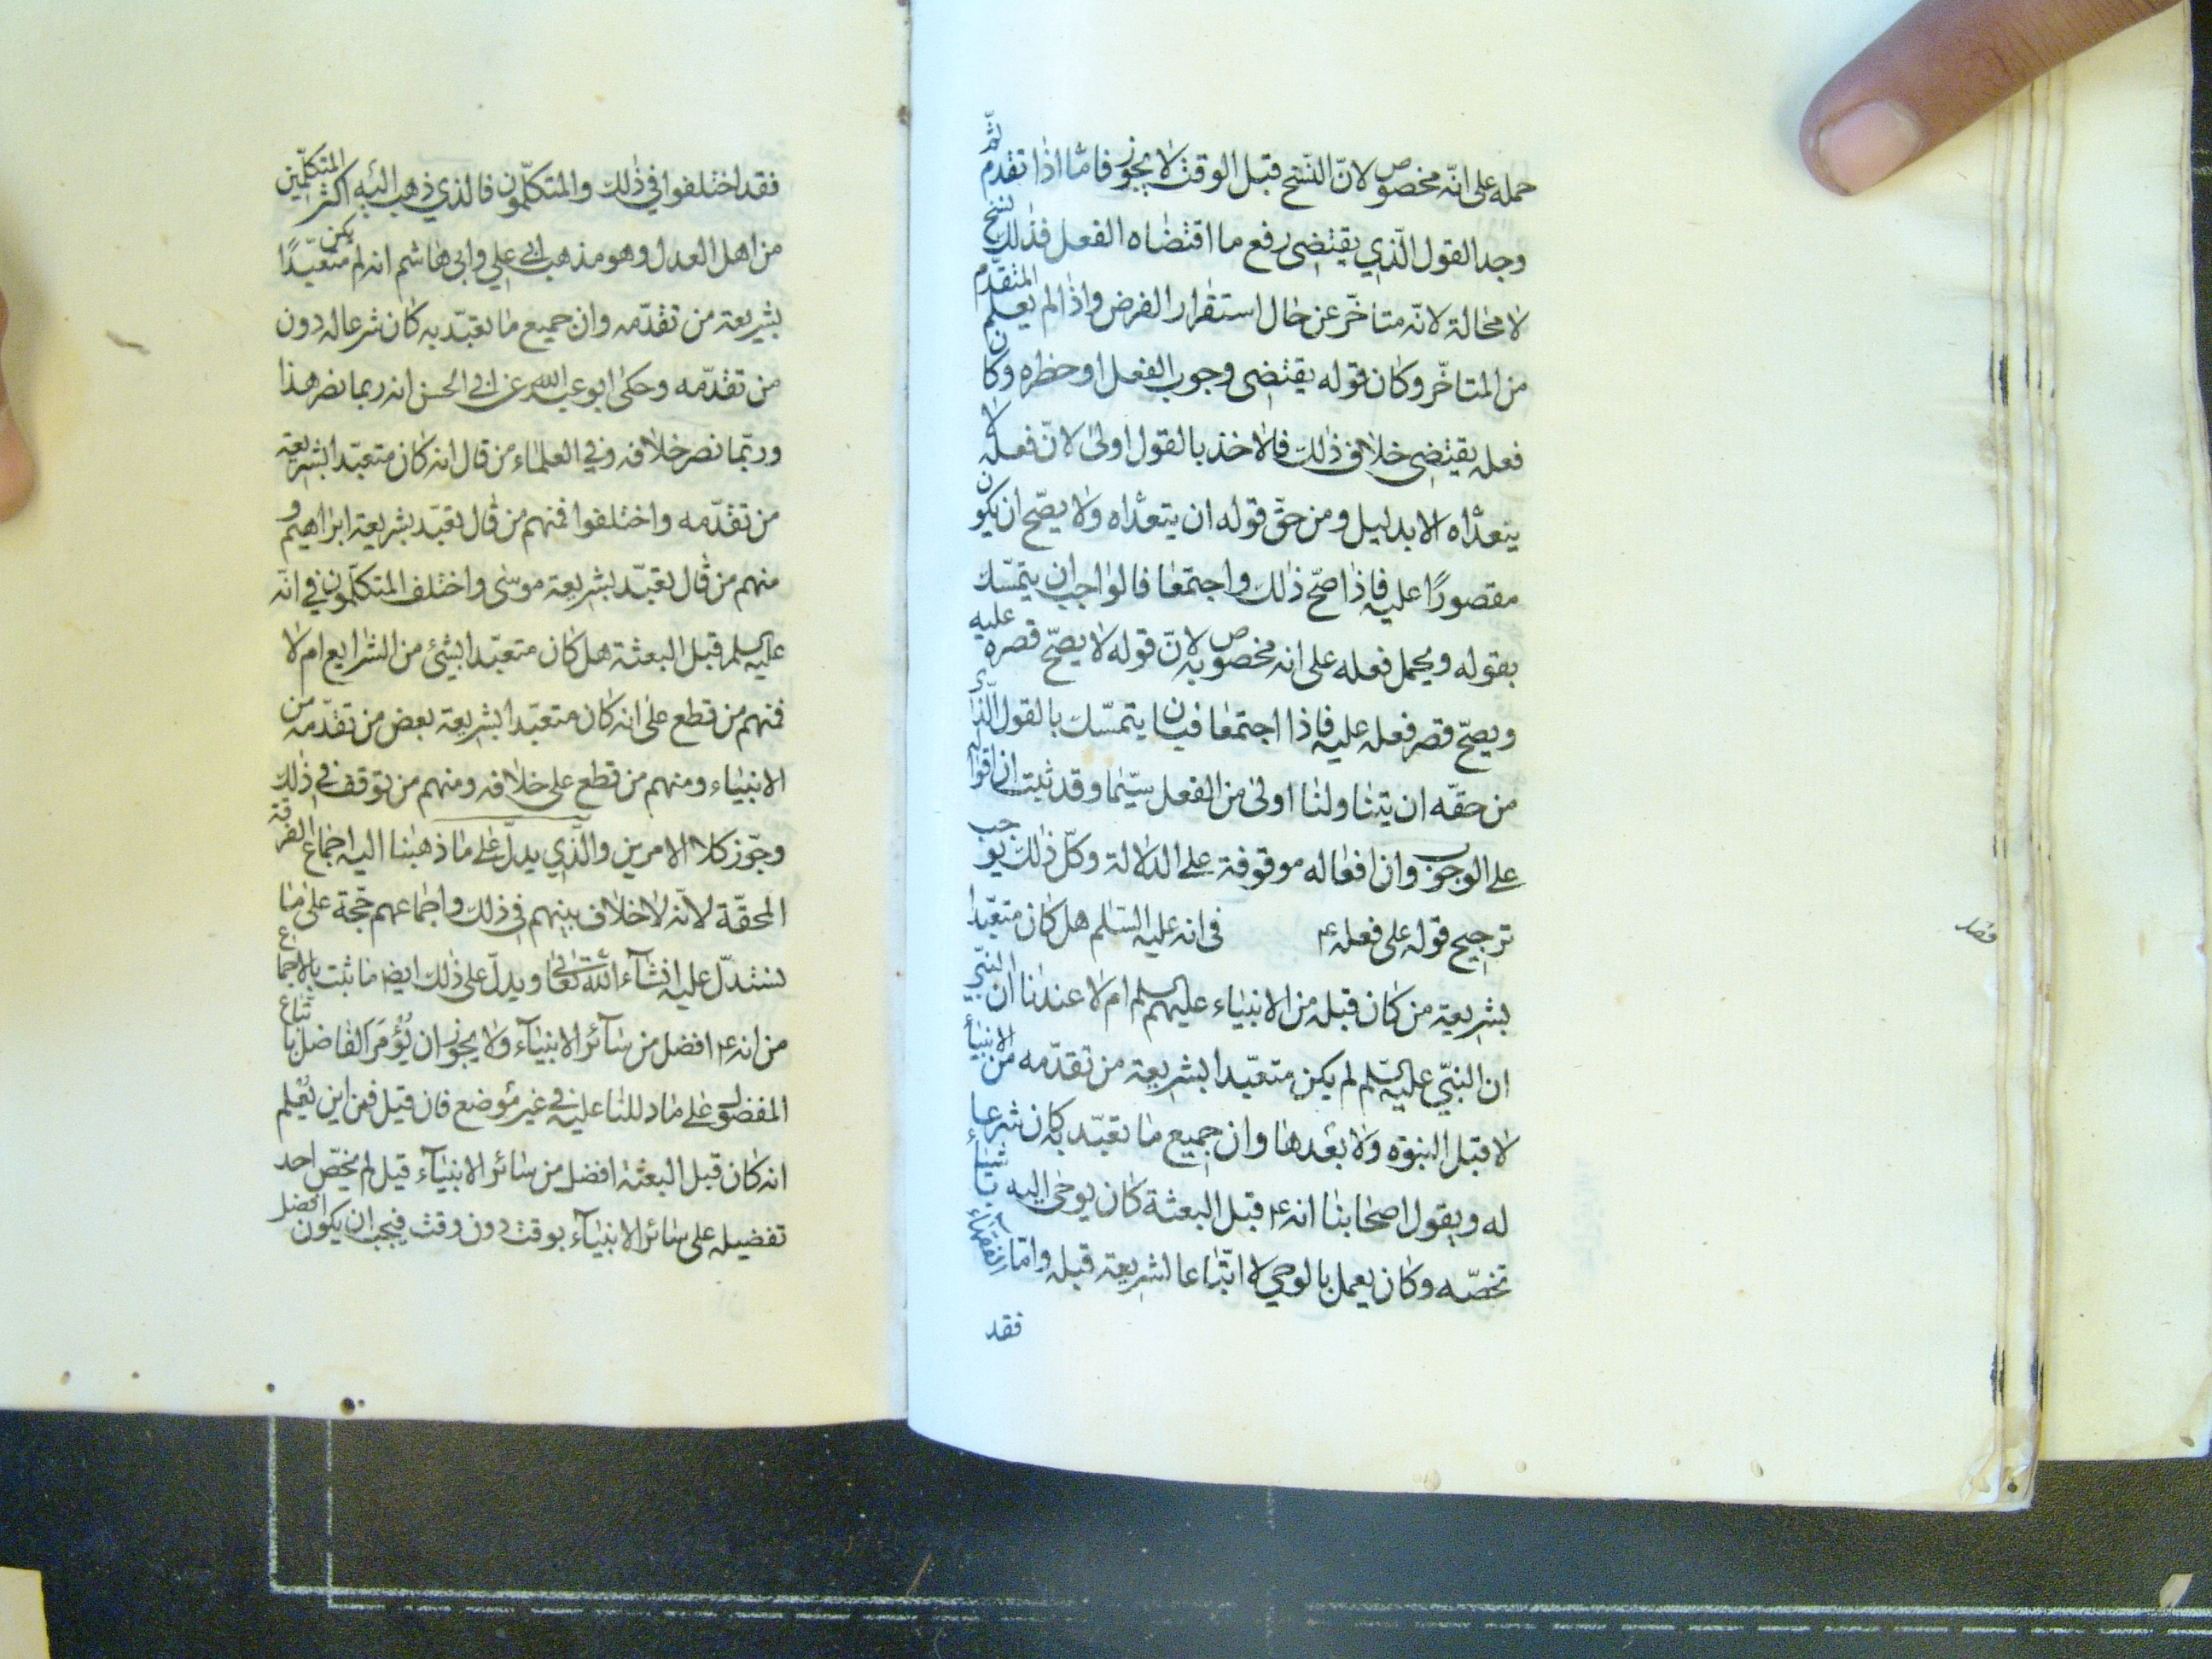 حمله على انّه مخصوص لانّ النّسخ قبل الوقت لا يجوز فامّا اذا تقدّم ثمّ
وجد القول الّذي يقتضى رفع ما اقتضاه الفعل فذلك نسخ
لا محالة لانّه متاخّر عن حال استقرار الفرض واذا لم يعلم المتقدّم
من المتاخّر وكان قوله يقتضى وجوب الفعل او حظره وكان
فعله يقتضى خلاف ذلك فالاخذ بالقول اولى لانّ فعله لا
يتعدّاه الا بدليل ومن حقّ قوله ان يتعدّاه ولا يصّح ان يكون
مقصورًا عليه فاذا صحّ ذلك واجتمعا فالواجب ان يتمسّك
بقوله ويحمل فعله على انه مخصوص به لانّ قوله لا يصحّ قصره عليه
ويصحّ قصر فعله عليه فاذا اجتمعا فبان يتمسّك بالقول الّذى
من حقّه ان يتناولنا اولى من الفعل سيّما وقد ثبت ان اقواله
على الوجوب وان افعاله موقوفة على الدلالة وكلّ ذلك يوجب
ترجيح قوله على فعله ء في انه عليه السّلم هل كان متعبّدا
فصل
بشريعة من كان قبله من الانبياء عليهم السلم ام لا عندنا ان النّبيّ
ان النبيّ عليه السّلم لم يكن متعبّدا بشريعة من تقدّمه من الانبياء
لا قبل النبوّه ولا بعدها وان جميع ما تعبّد به كان شرعا
له ويقول اصحابنا انه ء قبل البعثة كان يوحى اليه باشياء
تخصّه وكان يعمل بالوحي لا اتّباعا لشريعة قبله وامّا الفقهاء
فقد
فقد اختلفوا في ذلك والمتكلّمون فالذي ذهب اليه اكثر المتكلّمين
من اهل العدل وهو مذهب ابي علي وابي هاشم انه لم يكن متعبّدًا
بشريعة من تقدّمه وان جميع ما تعبّد به كان شرعا له دون
من تقدّمه وحكى ابو عبد الله عن ابي الحسن انه ربما نصر هذا
وربّما نصر خلافه وفي العلماء من قال انه كان متعبّدا بشريعة
من تقدّمه واختلفوا فمنهم من قال تعبّد بشريعة ابراهيم و
منهم من قال تعبّد بشريعة موسى واختلف المتكلّمون في انّه
عليه السلم قبل البعثة هل كان متعبّدا بشئ من الشرايع ام لا
فمنهم من قطع على انه كان متعبّدا بشريعة بعض من تقدّمه من
الانبياء ومنهم من قطع على خلافه ومنهم من توقف في ذلك
وجّوز كلا الامرين والّذي يدلّ على ما ذهبنا اليه اجماع الفرقة
المحقّة لانّه لا خلاف بينهم في ذلك واجماعهم حجّة على ما
نستدلّ عليه انشآء اللّه تعالى ويدلّ على ذلك ايضا ما ثبت بالاجماع
من انه ء افضل من سآئر الانبيآء ولا يجوز ان يُؤمَر الفاضل باتباع
المفضول على ما دللنا عليه في غير مَوضع فان قيل فمن اين يُعلم
انه كان قبل البعثة افضل من سائر الانبيآء قيل لم يخصّ احد
تفضيله على سائر الانبيآء بوقت دون وقت فيجب ان يكون افضل